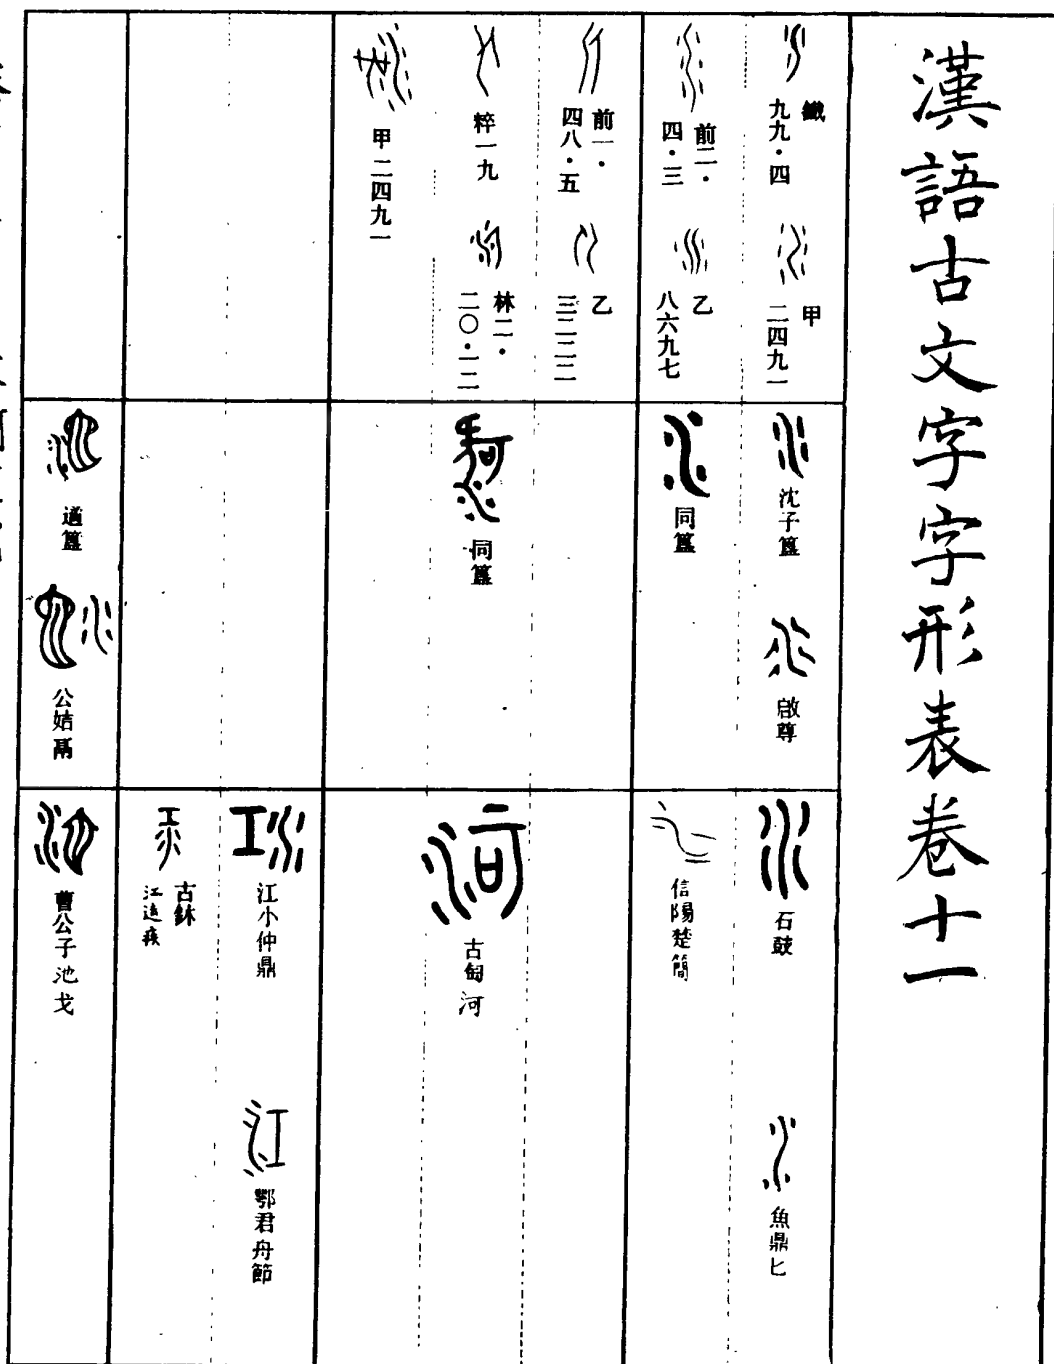 漢語古文字字形表卷十一
鐵
九九·四
甲
二四九一
前二·
四·三
乙
八六九七
前一·
四八·五
乙
三二二二
粹一九
林二·
二〇·一二
甲二四九一
沈子簋
啟尊
同簋
同簋
遹簋
公姞鬲
石鼓
魚鼎匕
信陽楚簡
古匋
河
江小仲鼎
鄂君舟節
古鉥
曹公子池戈